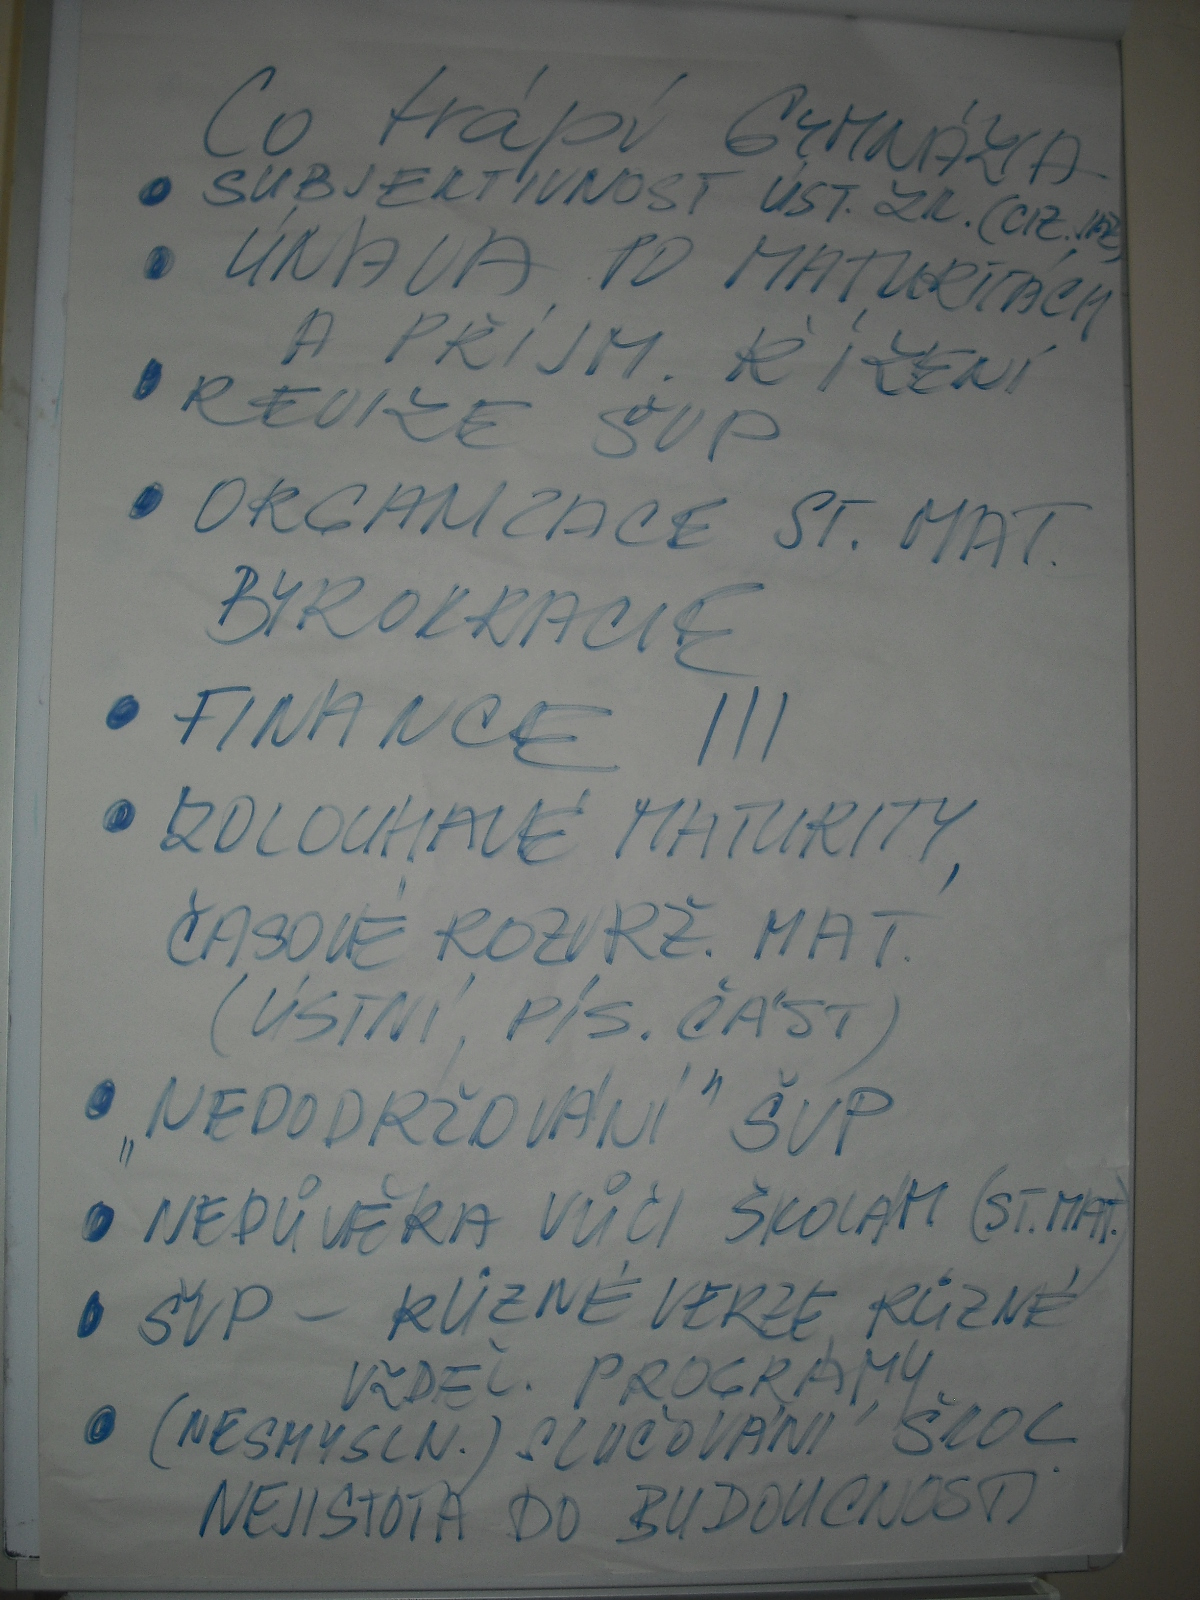 Co trápí GYMNÁZIA
• SUBJEKTIVNOST ÚST. ZK. (CIZ. JAZ)
• ÚNAVA PO MATURITÁCH
A PŘIJM. ŘÍZENÍ
• REVIZE ŠVP
• ORGANIZACE ST. MAT.
BYROKRACIE
• FINANCE !!!
• ZDLOUHAVÉ MATURITY,
ČASOVÉ ROZVRŽ. MAT.
(ÚSTNÍ, PÍS. ČÁST)
• „NEDODRŽOVÁNÍ" ŠVP
• NEDŮVĚRA VŮČI ŠKOLÁM (ST. MAT.)
• ŠVP – RŮZNÉ VERZE, RŮZNÉ
VZDĚL. PROGRAMY
• (NESMYSLN.) SLUČOVÁNÍ ŠKOL
NEJISTOTA DO BUDOUCNOSTI